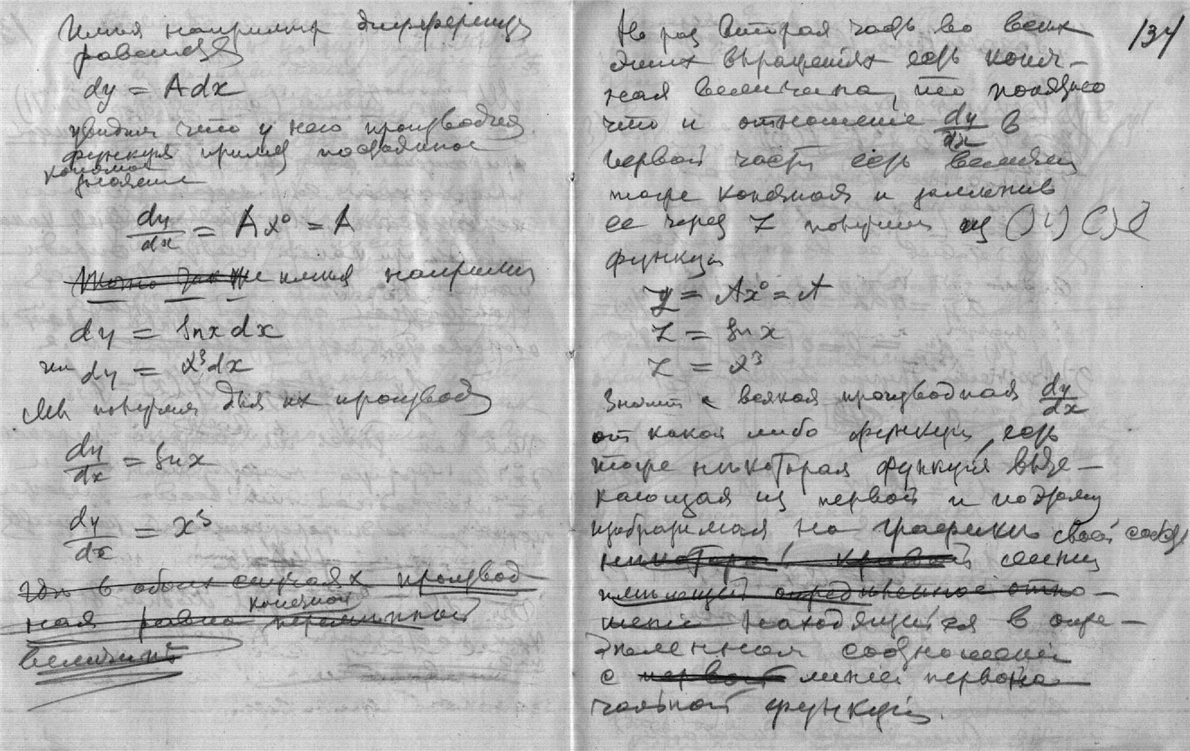 Имея например диференциал
равенства
dy = A dx
увидим что у него производная
функция примет постоянное
конечное
значение
dy/dx = Ax⁰ = A
же имея например
dy = ln x dx
или dy = x³dx
Мы получим для их производ
dy/dx = ln x
dy/dx = x³
где в обоих случаях производ
конечной
ная равна переменной
величине
Но раз вторая часть во всех
этих выражениях есть конеч-
ная величина, то понятно
что и отношение dy/dx в
первой части есть величина
тоже конечная и заменив
ее через Z получим из
функции
y = Ax⁰ = A
Z = ln x
Z = x³
Значит всякая производная dy/dx
от какой либо функции, есть
тоже некоторая функция выте-
кающая из первой и потому
изображаемая на графике своей особой
некоторой кривой линии
имеющей определенное отно-
шение находящейся в опре-
деленном соотношении
с первой линией первона
чальной функции.
134